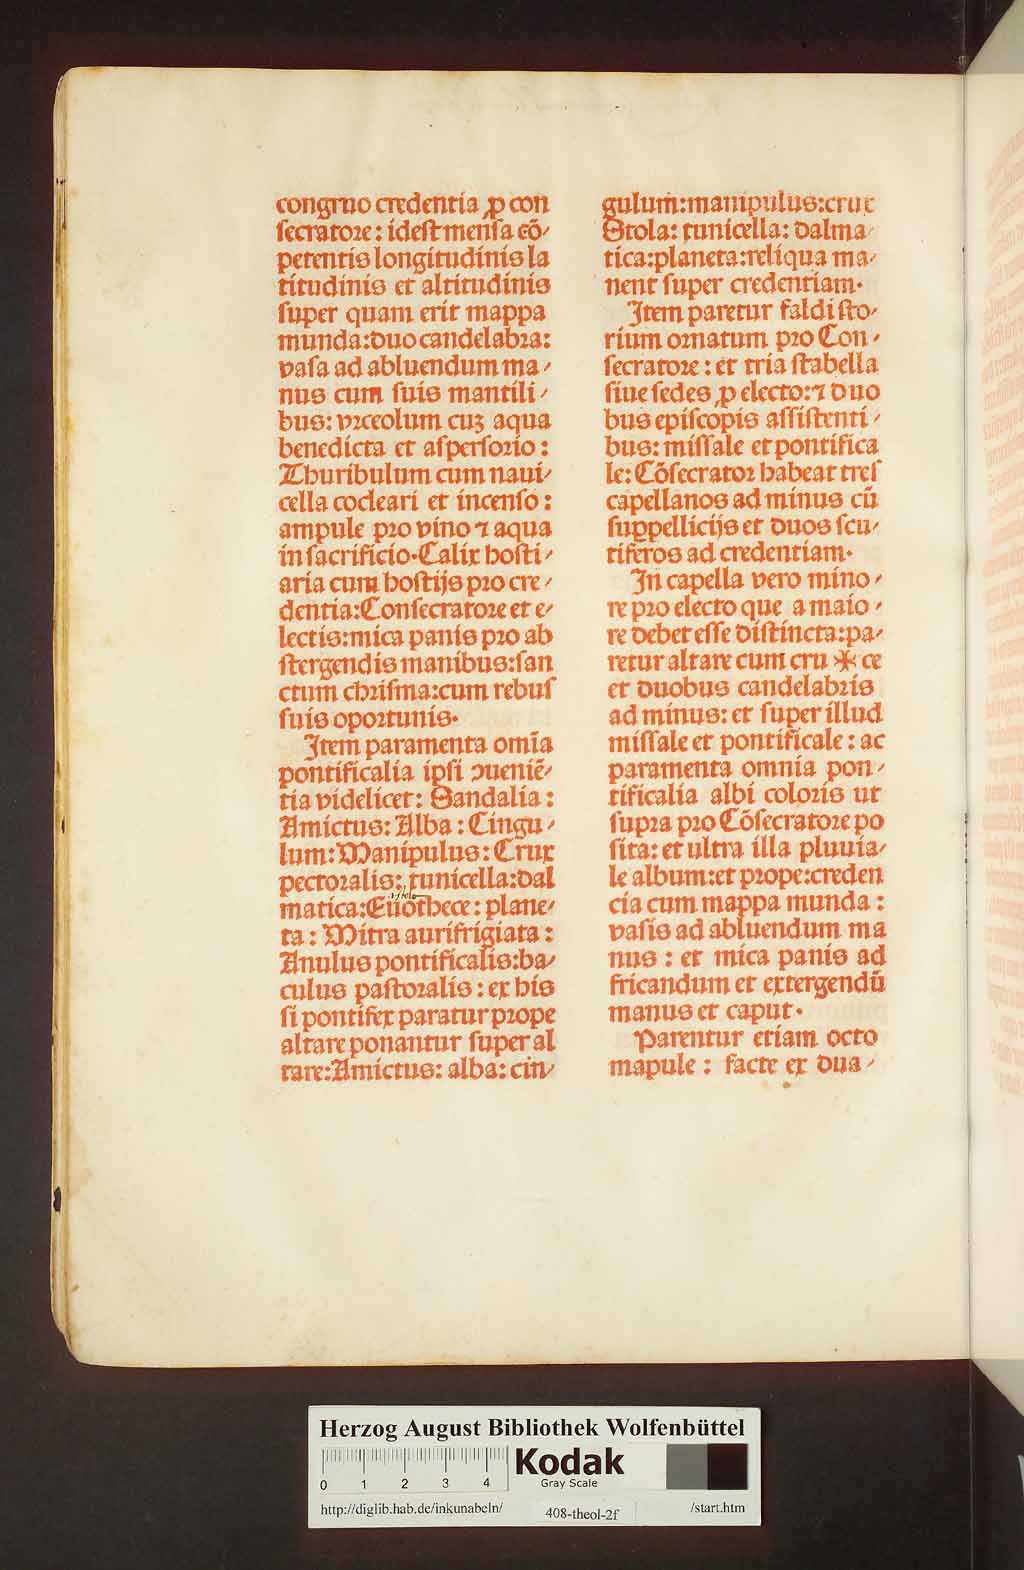 congruo credentia ꝓ con
ſecratore: ideſt menſa cō/
petentis longitudinis la
titudinis et altitudinis
ſuper quam erit mappa
munda:duo candelabra:
vaſa ad abluendum ma/
nus cum ſuis mantili/
bus: vrceolum cuꝫ aqua
benedicta et aſperſorio:
Thuribulum cum naui/
cella cocleari et incenſo:
ampule pro vino ⁊ aqua
in ſacrificio·Calix hoſti/
aria cum hoſtijs pro cre/
dentia:Conſecratore et e/
lectis:mica panis pro ab
ſtergendis manibus:ſan
ctum chriſma:cum rebuſ
ſuis oportunis·
Item paramenta om̄ia
pontificalia ipſi ↄueniē/
tia videlicet: Sandalia:
Amictus: Alba: Cingu/
lum: Manipulus: Crux
pectoralis: tunicella:dal
matica:Euothece: plane/
ta: Mitra aurifrigiata:
Anulus pontificalis:ba/
culus paſtoralis: ex his
ſi pontifex paratur prope
altare ponantur ſuper al
tare:Amictus: alba: cin/
gulum:manipulus:crux
Stola: tunicella: dalma/
tica:planeta:reliqua ma/
nent ſuper credentiam·
Item paretur faldiſto/
rium ornatum pro Con/
ſecratore: et tria ſtabella
ſiue ſedes ꝓ electo:⁊ duo
bus epiſcopis aſſiſtenti/
bus: miſſale et pontifica
le: Cōſecrator habeat treſ
capellanos ad minus cū
ſuppellicijs et duos ſcu/
tiferos ad credentiam·
In capella vero mino/
re pro electo que a maio/
re debet eſſe diſtincta:pa/
retur altare cum cru ✠ ce
et duobus candelabris
ad minus: et ſuper illud
miſſale et pontificale: ac
paramenta omnia pon/
tificalia albi coloris ut
ſupra pro Cōſecratore po
ſita: et ultra illa pluuia/
le album:et prope:creden
cia cum mappa munda:
vaſis ad abluendum ma
nus: et mica panis ad
fricandum et extergendū
manus et caput·
Parentur etiam octo
mapule: facte ex dua/
Herzog August Bibliothek Wolfenbüttel
0 1 2 3 4
Kodak
Gray Scale
http://diglib.hab.de/inkunabeln/ 408-theol-2f /start.htm